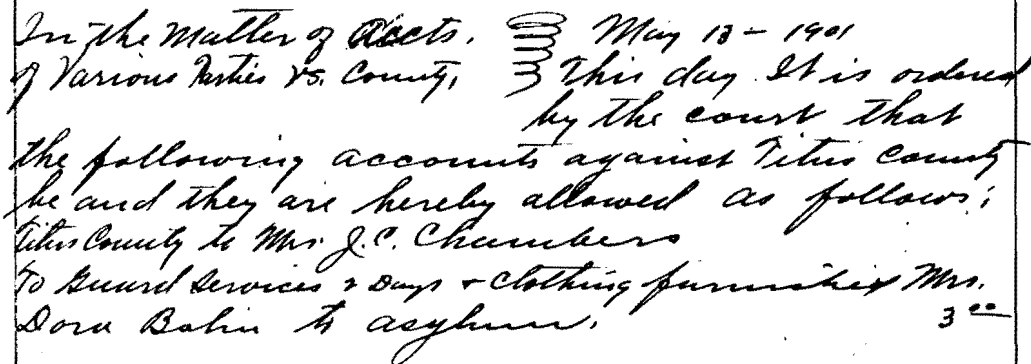 In the Matter of Accts. May 13 - 1901
of Various Parties vs. County, This day It is ordered
by the court that
the following accounts against Titus County
be and they are hereby allowed as follows;
Titus County to Mrs. J.C. Chambers
To Guard Services 2 Days & Clothing furnished Mrs.
Dora Bolin to asylum. 3 00